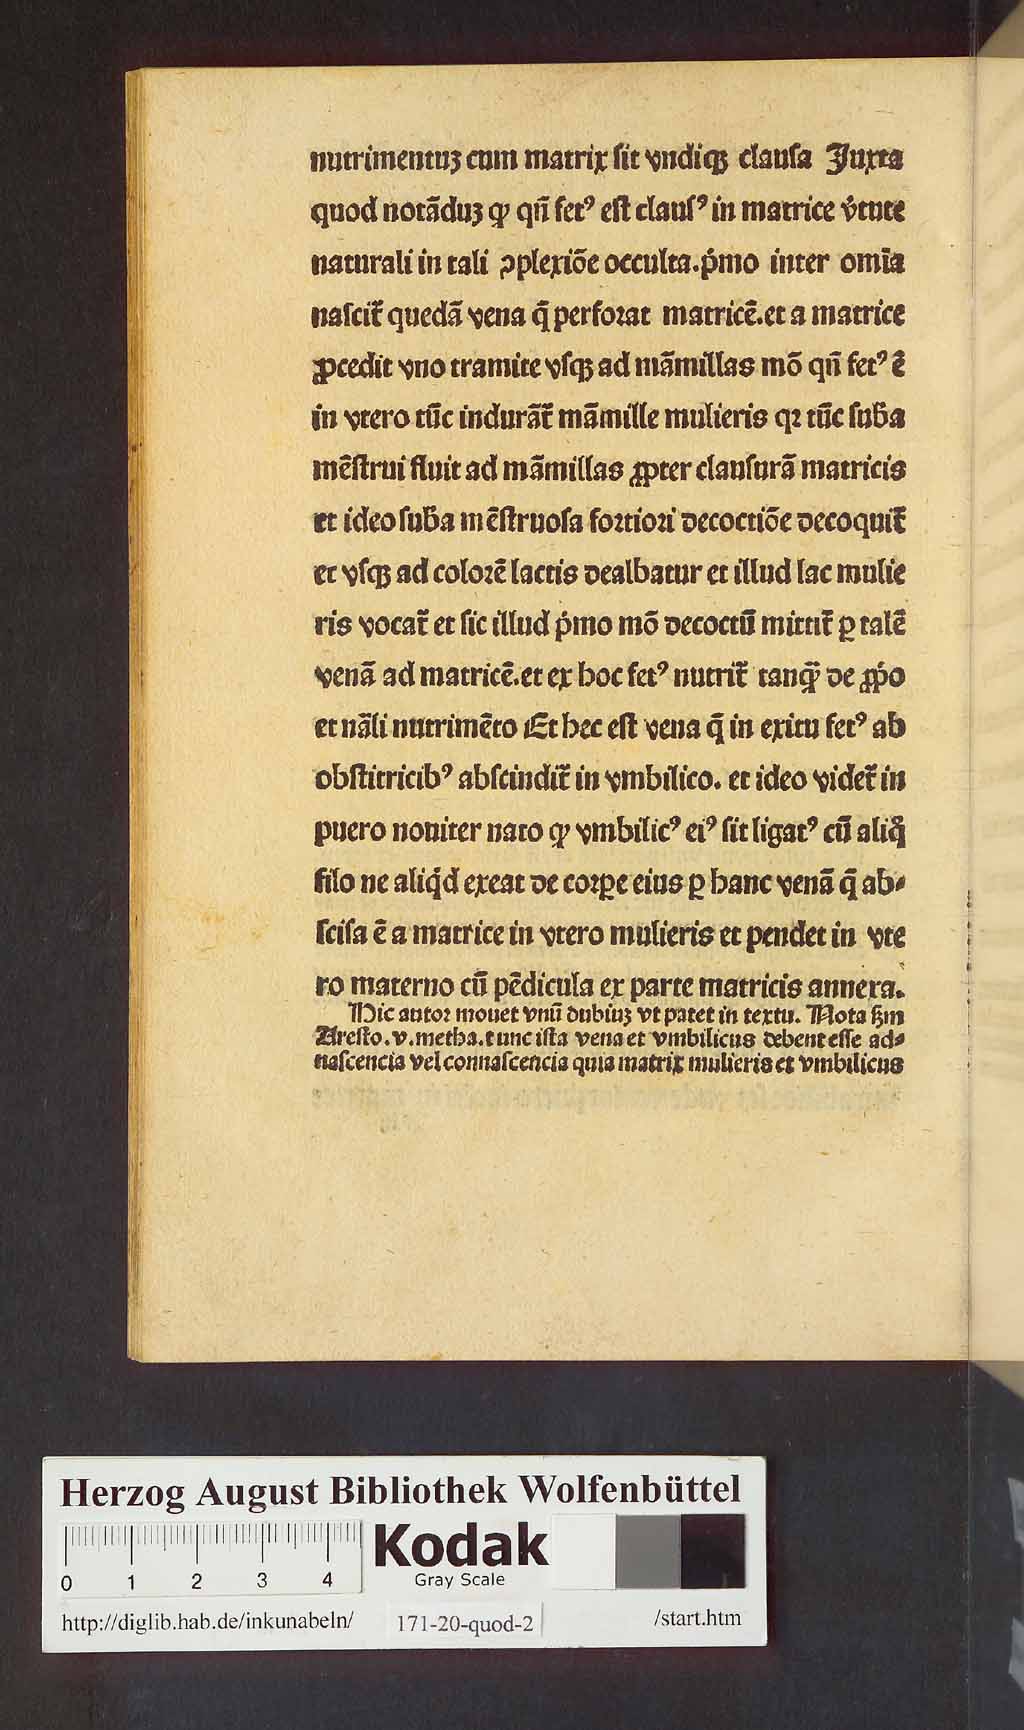 nutrimentuꝫ cum matrix ſit vndiqꝫ clauſa Juxta
quod notāduꝫ ꝙ qn̄ fetꝰ eſt clauſꝰ in matrice v̓tute
naturali in tali ꝯplexiōe occulta. p̓mo inter om̄ia
naſcit᷑ quedā vena q̄ perforat matricē. et a matrice
ꝓcedit vno tramite vſqꝫ ad māmillas mō qn̄ fetꝰ ē
in vtero tūc indurāt᷑ māmille mulieris qꝛ tūc ſub̄a
mēſtrui fluit ad māmillas ꝓpter clauſurā matricis
et ideo ſub̄a mēſtruoſa fortiori decoctiōe decoquit᷑
et vſqꝫ ad colorē lactis dealbatur et illud lac mulie
ris vocat᷑ et ſic illud p̓mo mō decoctū mittit᷑ ꝑ talē
venā ad matricē. et ex hoc fetꝰ nutrit᷑ tanqȝ̄ de ꝓp̓o
et nāli nutrimēto Et hec eſt vena q̄ in exitu fetꝰ ab
obſtitricibꝰ abſcindit᷑ in vmbilico. et ideo videt᷑ in
puero nouiter nato ꝙ vmbilicꝰ eiꝰ ſit ligatꝰ cū aliq̊
filo ne aliq̓d exeat de corꝑe eius ꝑ hanc venā q̄ ab⸗
ſciſa ē a matrice in vtero mulieris et pendet in vte
ro materno cū pēdicula ex parte matricis annexa.
Hic autor mouet vnū dubiuꝫ vt patet in textu. Nota ẜm
Areſto. v. metha. tunc iſta vena et vmbilicus debent eſſe ad⸗
naſcencia vel connaſcencia quia matrix mulieris et vmbilicus
Herzog August Bibliothek Wolfenbüttel
0 1 2 3 4
Kodak
Gray Scale
http://diglib.hab.de/inkunabeln/ 171-20-quod-2 /start.htm